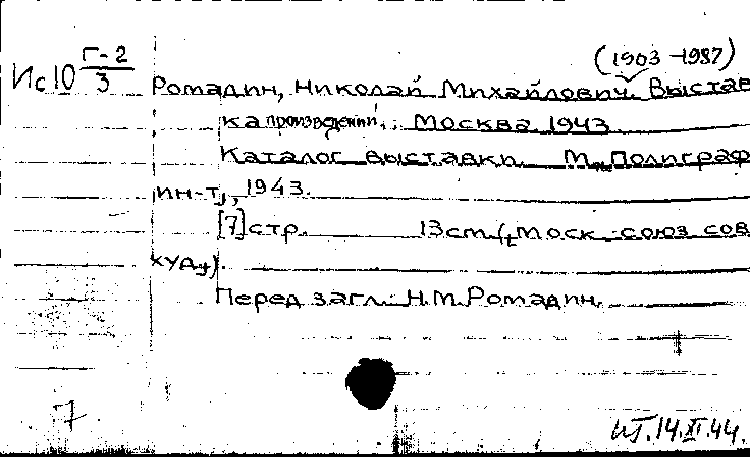 (1903-1987)
Ис10 Г-2/3
Ромадин, Николай Михайлович. Выстав
ка произведений. Москва 1943.
Каталог выставки. М., Полиграф
ин-т, 1943.
[7] стр. 13см. (Моск. союз сов
худ.).
Перед загл.: Н.М. Ромадин.
7
ИТ.14.XI.44.